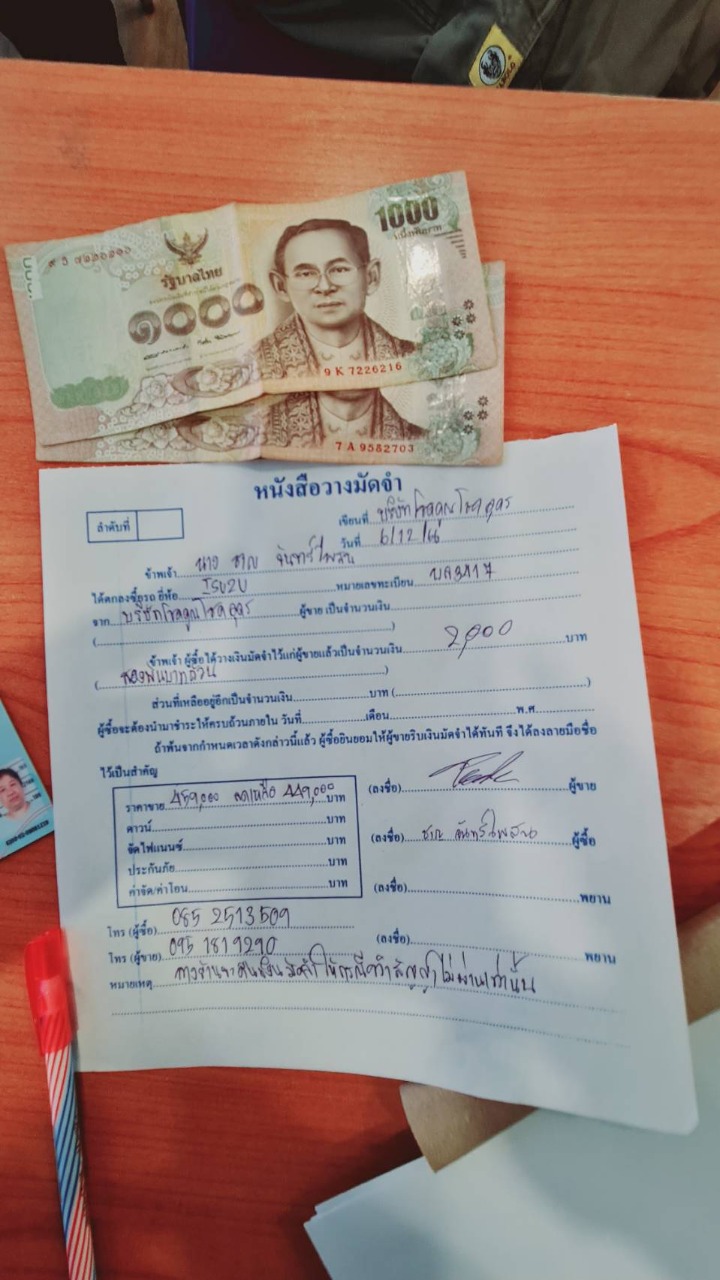 1000
หนึ่งพันบาท
รัฐบาลไทย
๑๐๐๐
9 K 7226216
7 A 9582703
หนังสือวางมัดจำ
ลำดับที่
เขียนที่ บริษัทโชคคูณโชคอุดร
วันที่ 6/12/
ข้าพเจ้า นาง ชาญ จันทร์ไพสน
ได้ตกลงซื้อรถ ยี่ห้อ ISUZU หมายเลขทะเบียน
จาก บริษัทโชคคูณโชคอุดร ผู้ขาย เป็นจำนวนเงิน
ข้าพเจ้า ผู้ซื้อได้วางเงินมัดจำไว้แก่ผู้ขายแล้วเป็นจำนวนเงิน 2,000 บาท
(สองพันบาทถ้วน)
ส่วนที่เหลืออยู่อีกเป็นจำนวนเงิน บาท ( )
ผู้ซื้อจะต้องนำมาชำระให้ครบถ้วนภายใน วันที่ เดือน พ.ศ.
ถ้าพ้นจากกำหนดเวลาดังกล่าวนี้แล้ว ผู้ซื้อยินยอมให้ผู้ขายริบเงินมัดจำได้ทันที จึงได้ลงลายมือชื่อ
ไว้เป็นสำคัญ
ราคาขาย 459,000 ลดเหลือ 449,000 บาท
ดาวน์ บาท
จัดไฟแนนซ์ บาท
ประกันภัย บาท
ค่าจัด/ค่าโอน บาท
(ลงชื่อ) ผู้ขาย
(ลงชื่อ) ชาญ จันทร์ไพสน ผู้ซื้อ
(ลงชื่อ) พยาน
(ลงชื่อ) พยาน
โทร (ผู้ซื้อ) 085 2513509
โทร (ผู้ขาย) 095 1819290
หมายเหตุ ทางร้านจะคืนเงินมัดจำให้กรณีทำสัญญาไม่ผ่านเท่านั้น